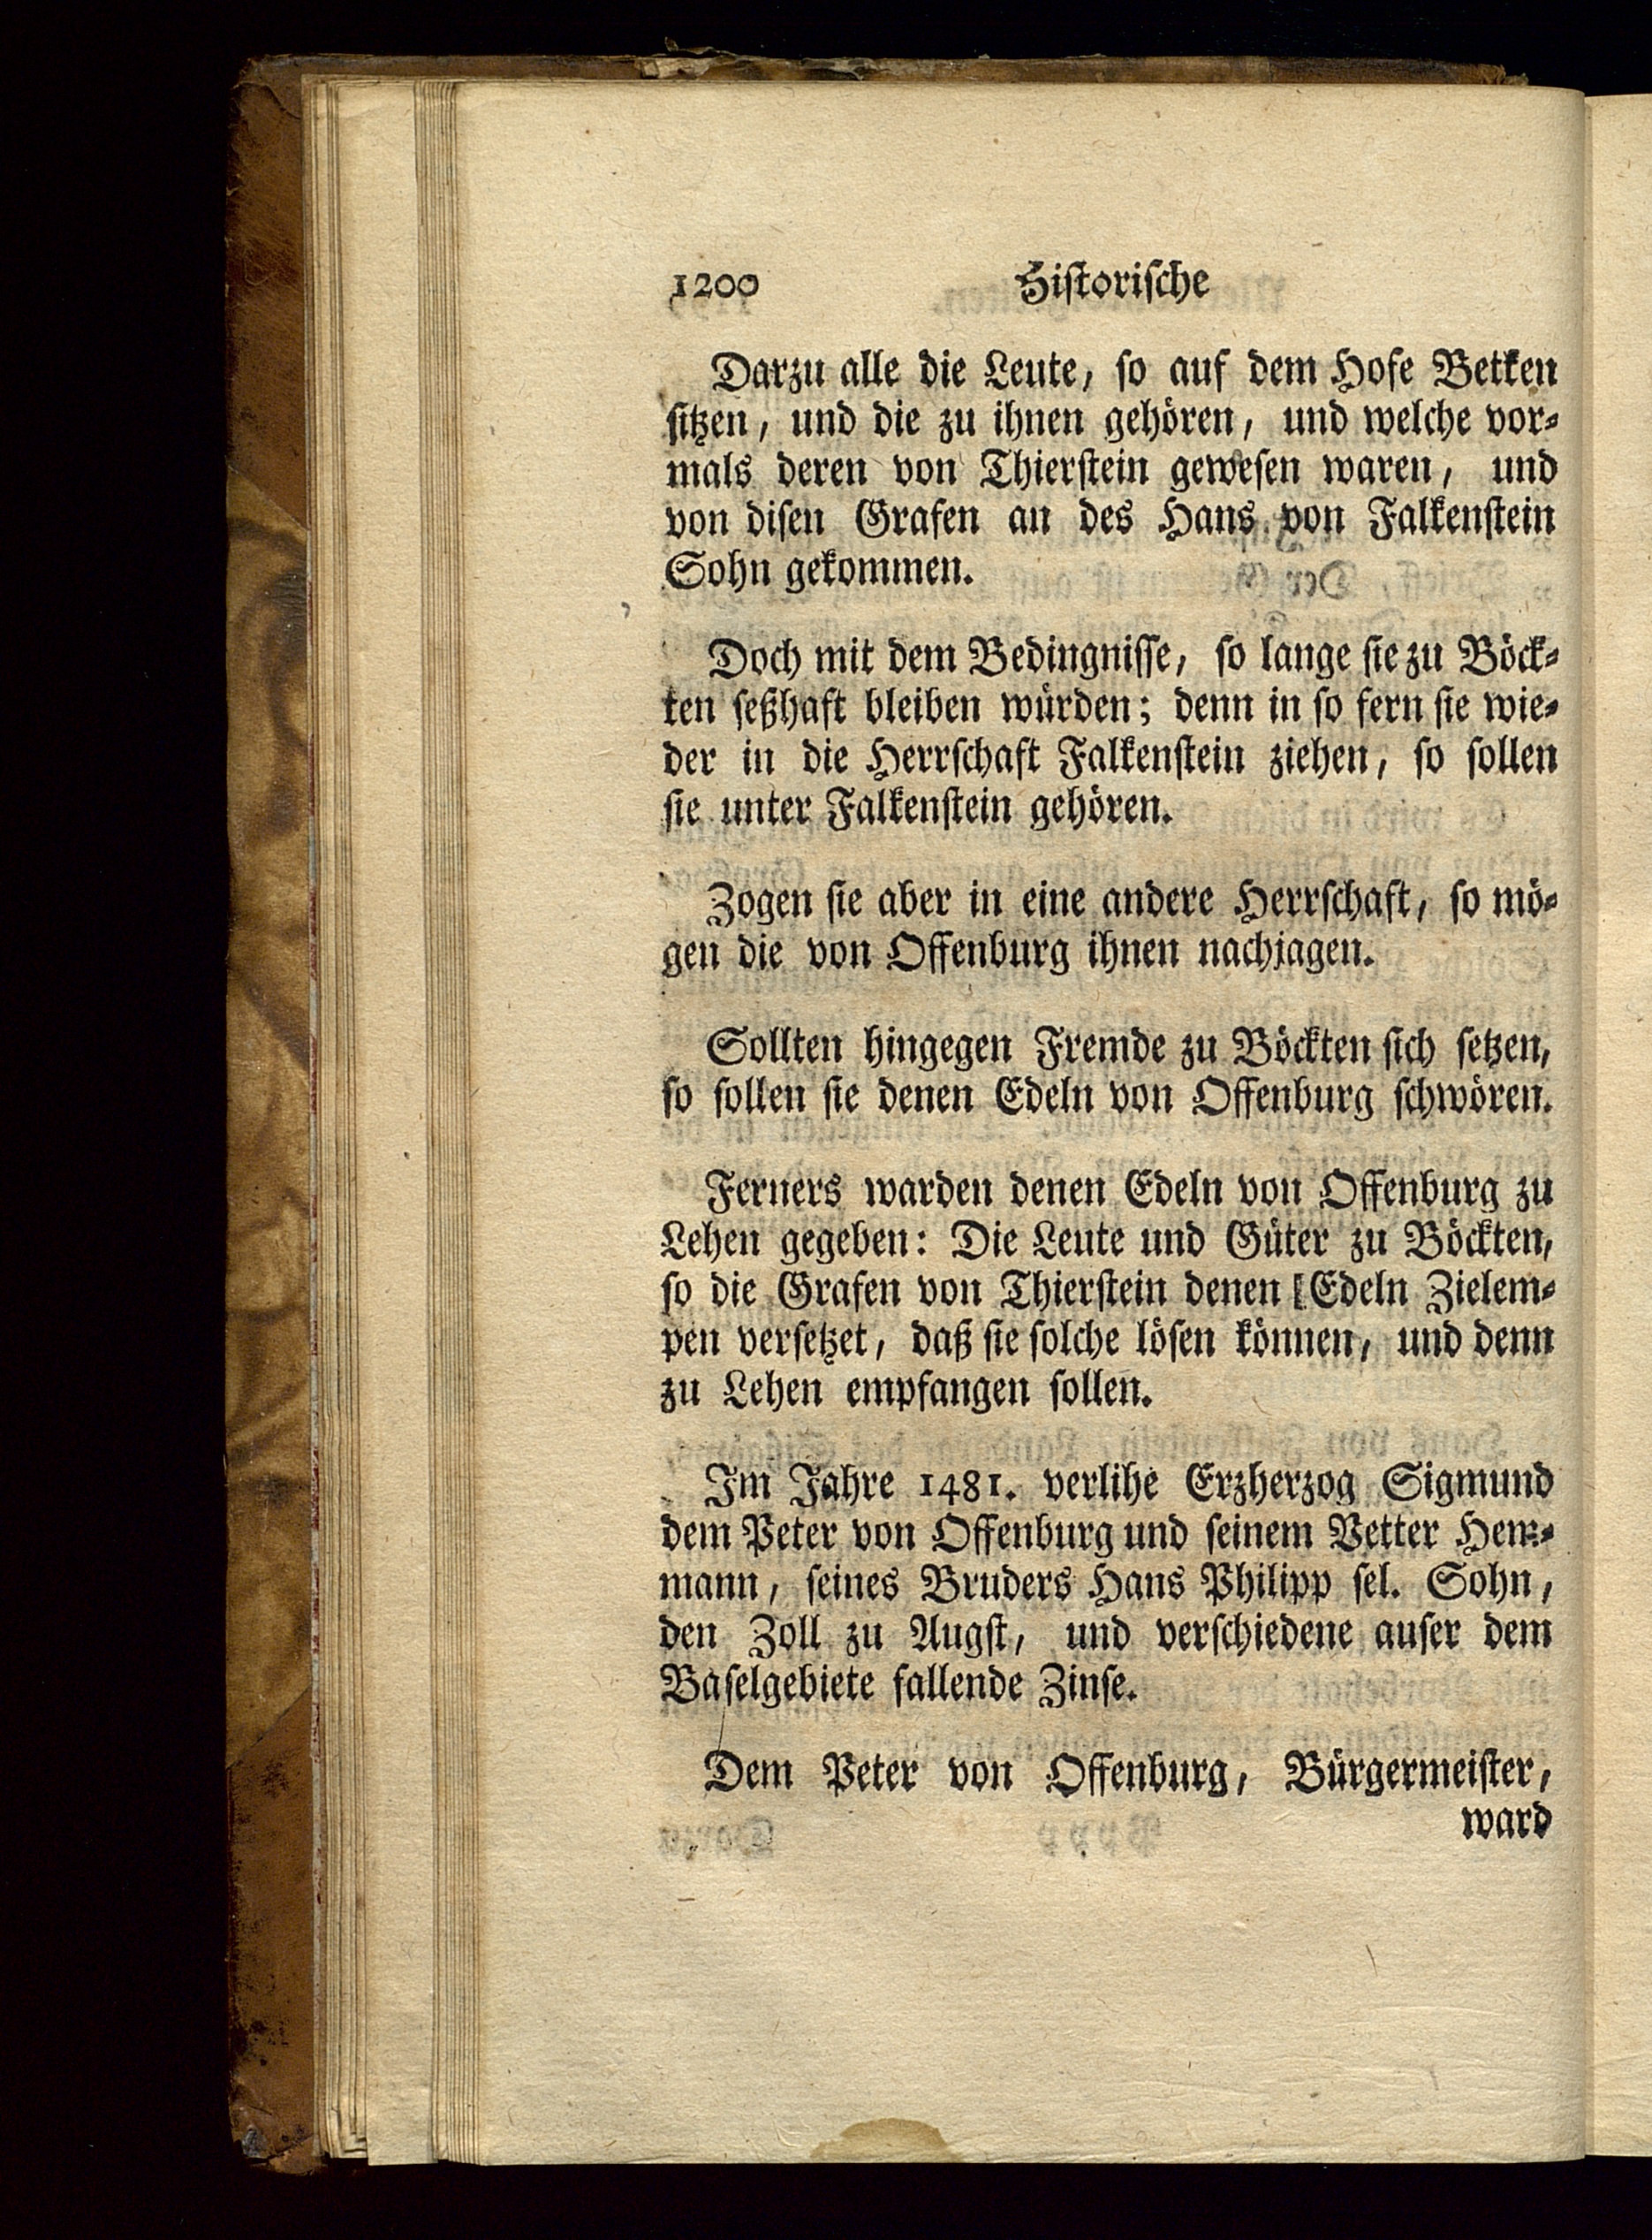 1200 Historische
Darzu alle die Leute, so auf dem Hofe Betken
sitzen, und die zu ihnen gehören, und welche vor-
mals deren von Thierstein gewesen waren, und
von disen Grafen an des Hans von Falkenstein
Sohn gekommen.
Doch mit dem Bedingnisse, so lange sie zu Böck-
ten seßhaft bleiben würden; denn in so fern sie wie-
der in die Herrschaft Falkenstein ziehen, so sollen
sie unter Falkenstein gehören.
Zogen sie aber in eine andere Herrschaft, so mö-
gen die von Offenburg ihnen nachjagen.
Sollten hingegen Fremde zu Böckten sich setzen,
so sollen sie denen Edeln von Offenburg schwören.
Ferners warden denen Edeln von Offenburg zu
Lehen gegeben: Die Leute und Güter zu Böckten,
so die Grafen von Thierstein denen [Edeln Zielem-
pen versetzet, daß sie solche lösen können, und denn
zu Lehen empfangen sollen.
Im Jahre 1481. verlihe Erzherzog Sigmund
dem Peter von Offenburg und seinem Vetter Hem-
mann, seines Bruders Hans Philipp sel. Sohn,
den Zoll zu Augst, und verschiedene auser dem
Baselgebiete fallende Zinse.
Dem Peter von Offenburg, Bürgermeister,
ward